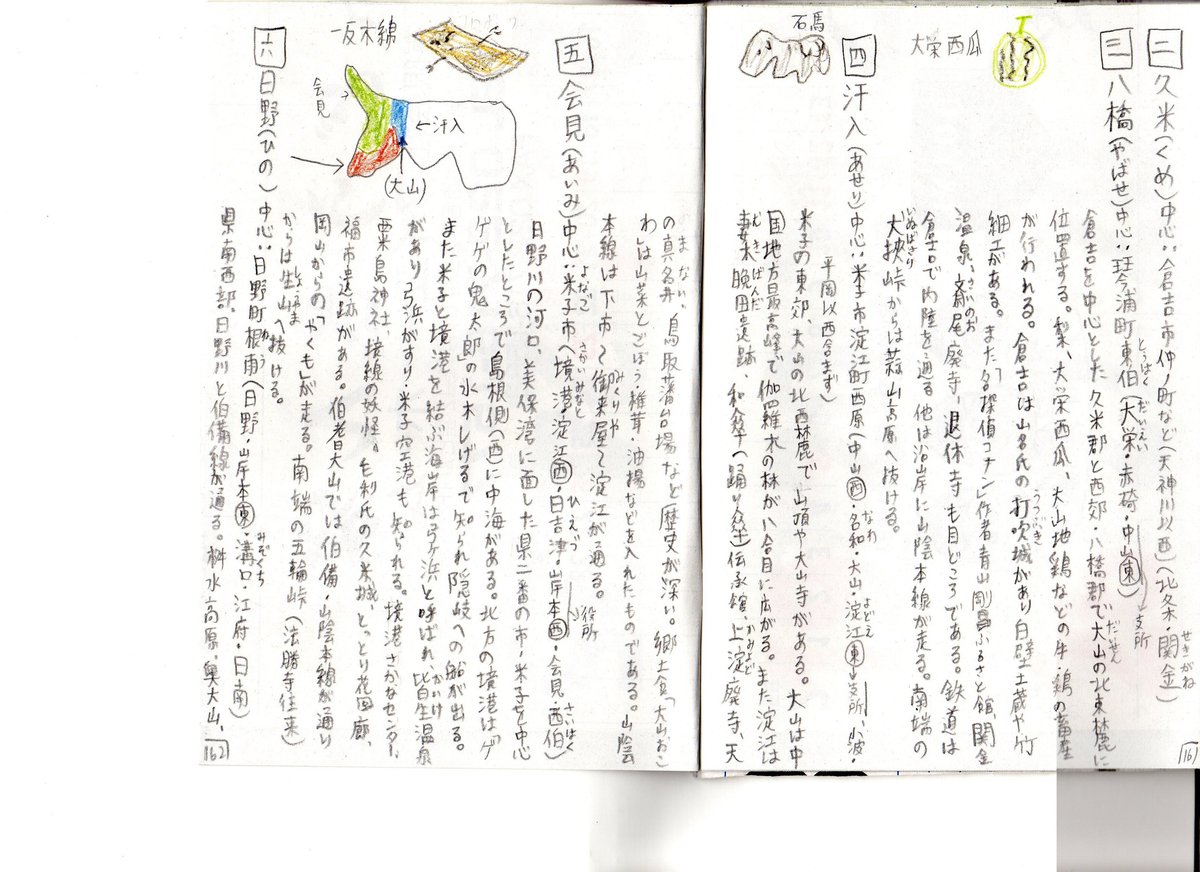 161
二 久米(くめ)中心:倉吉市仲ノ町など(天神川以西)(北条・関金)
せきがね
三 八橋(やばせ)中心:琴浦町東伯(大栄・赤碕・中山東)
とうはく
だいえい
支所
倉吉を中心とした久米郡と西郊・八橋郡で大山の北東麓に
だいせん
位置する。梨、大栄西瓜、大山地鶏などの牛・鶏の畜産
が行われる。倉吉は山名氏の打吹城があり白壁土蔵や竹
うつぶき
細工がある。また「名探偵コナン」作者青山剛昌ふるさと館、関金
温泉、斎尾廃寺、退休寺も見どころである。鉄道は
さいのお
倉吉で内陸を通る他は沿岸に山陰本線が走る。南端の
犬挟峠からは蒜山高原へ抜ける。
いぬばさり
大栄西瓜
四 汗入(あせり)中心:米子市淀江町西原(中山西・名和・大山・淀江東→支所 小波・
なわ
よどえ
平岡以西含まず)
米子の東郊、大山の北西麓で山頂や大山寺がある。大山は中
国地方最高峰で伽羅木の林が八合目に広がる。また淀江は
妻木晩田遺跡、和傘(傘踊り)伝承館、上淀廃寺、天
むきばんだ
かみよど
石馬
の真名井、鳥取藩台場など歴史が深い。郷土食「大山おこ
まない
わ」は山菜とごぼう椎茸・油揚などを入れたものである。山陰
本線は下市〜御来屋〜淀江が通る。
みくりや
五 会見(あいみ)中心:米子市(境港・淀江西・日吉津・岸本西・会見・西伯)
よなご
さかいみなと
ひえづ
役所
さいはく
日野川の河口、美保湾に面した県二番の市・米子を中心
としたところで島根側(西)に中海がある。北方の境港は「ゲ
ゲゲの鬼太郎」の水木しげるで知られ隠岐への船が出る。
また米子と境港を結ぶ海岸は弓ヶ浜と呼ばれ、皆生温泉
かいけ
があり弓浜がすり・米子空港も知られる。境港さかなセンター、
粟島神社、境線の妖怪。毛利氏の久米城、とっとり花回廊、
福市遺跡がある。伯耆大山では伯備・山陰本線が通り
岡山からの「やくも」が走る。南端の五輪峠(法勝寺往来)
からは生山へ抜ける。
しょうやま
一反木綿
会見
←汗入
(大山)
六 日野(ひの)中心:日野町根雨(日野・岸本東・溝口・江府・日南)
みぞくち
県南西部、日野川と伯備線が通る。桝水高原・奥大山、
162